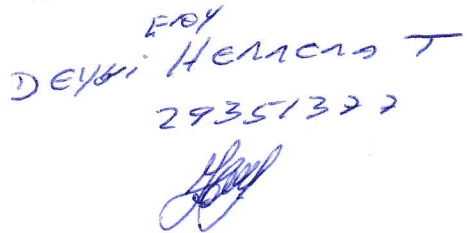 Eddy
Deyvi Herrera T
29351377